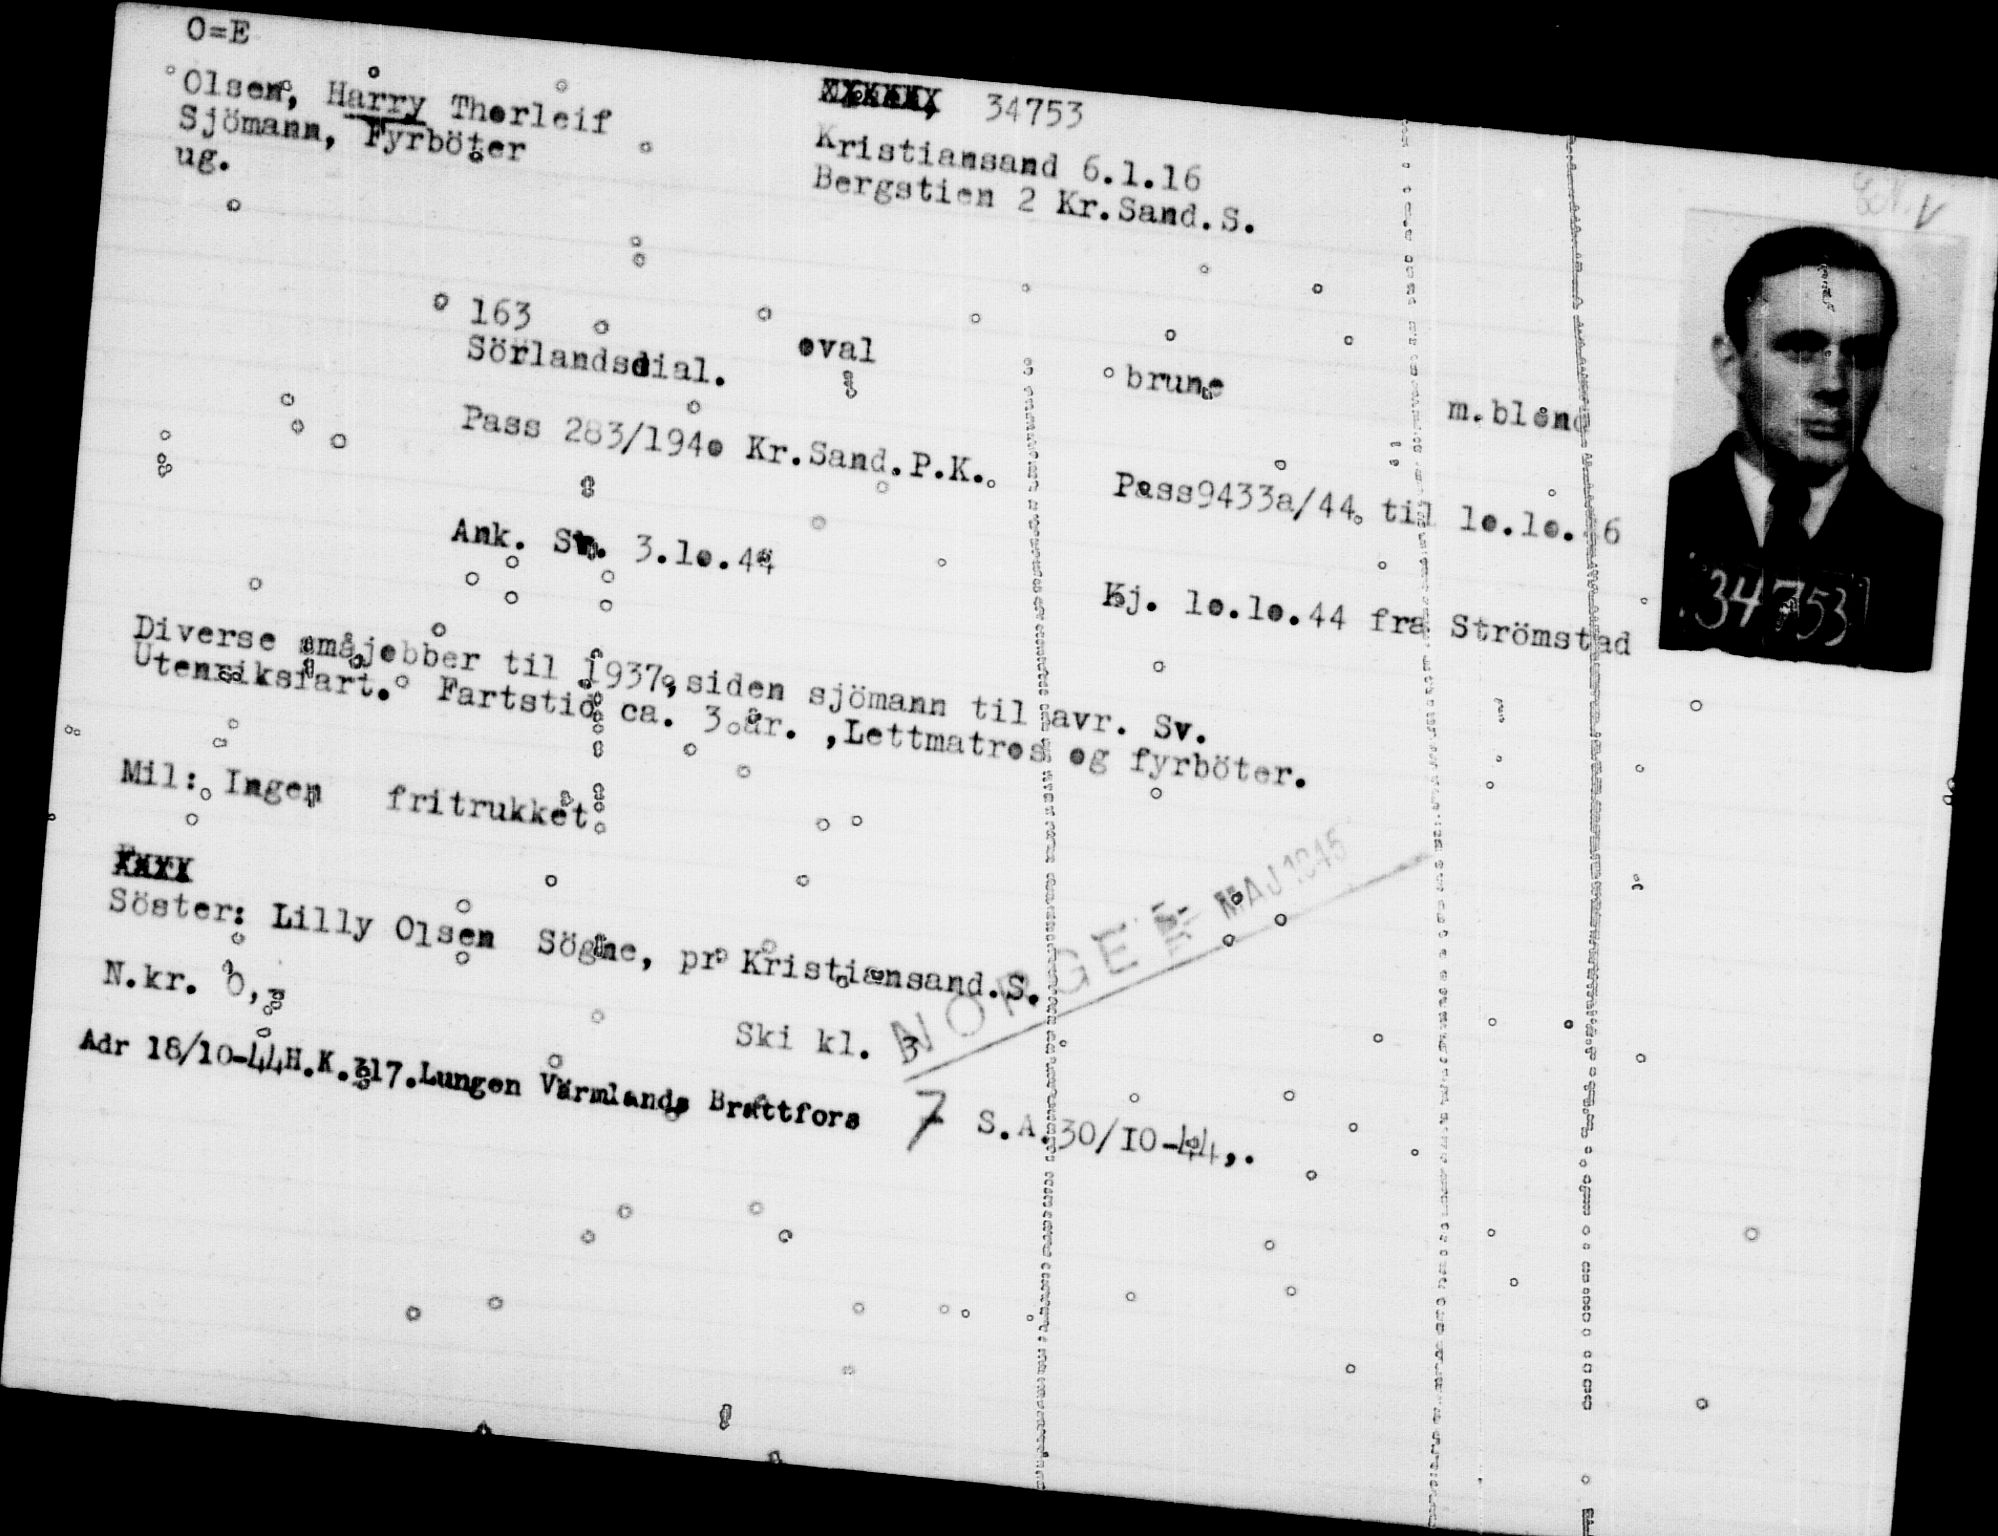 O=E
Olsen, Harry Thorleif
34753
Sjömann, Fyrböter
Kristiansand 6.1.16
ug.
Bergstien 2 Kr.Sand.S.
163
oval
brune
m.blond
Sörlandsdial.
Pass 283/194o Kr.Sand.P.K.
Pass9433a/44 til 1o.1o.
Ank. Sv. 3.1o.44
Kj. 1o.1o.44 fra Strömstad
34753
Diverse småjobber til 1937,siden sjömann til avr. Sv.
Utenriksfart. Fartstid ca. 3 år. ,Lettmatros og fyrböter.
Mil: Ingen fritrukket
Söster: Lilly Olsen Sögne, pr Kristiansand.S.
N.kr. 0,-
Ski kl. 3
NORGE MAJ 1945
Adr 18/10-44H.K.317.Lungen Värmlands Brattfors 7 S.A.30/10-44,.